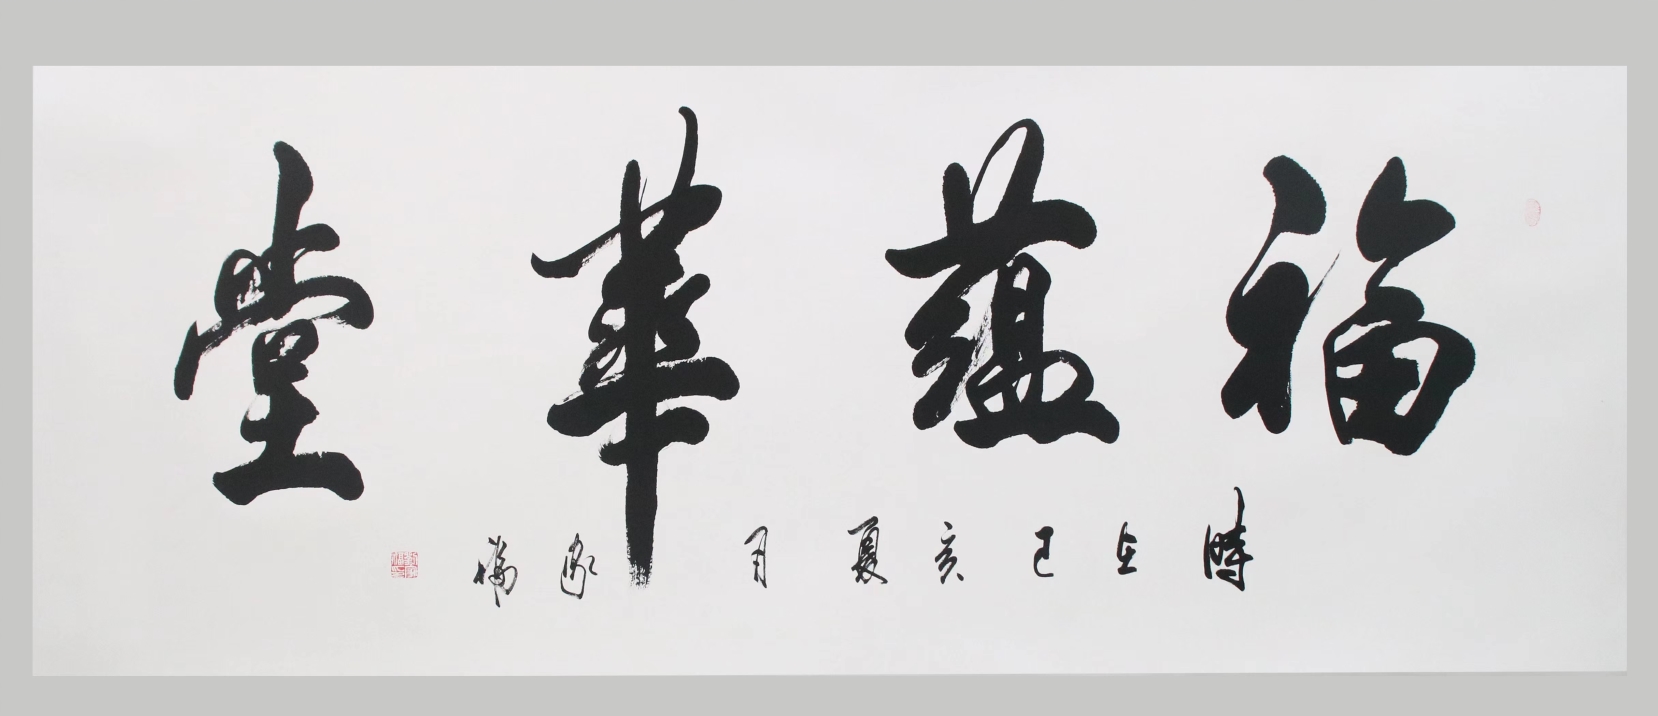 福蘊華堂
時在己亥夏月